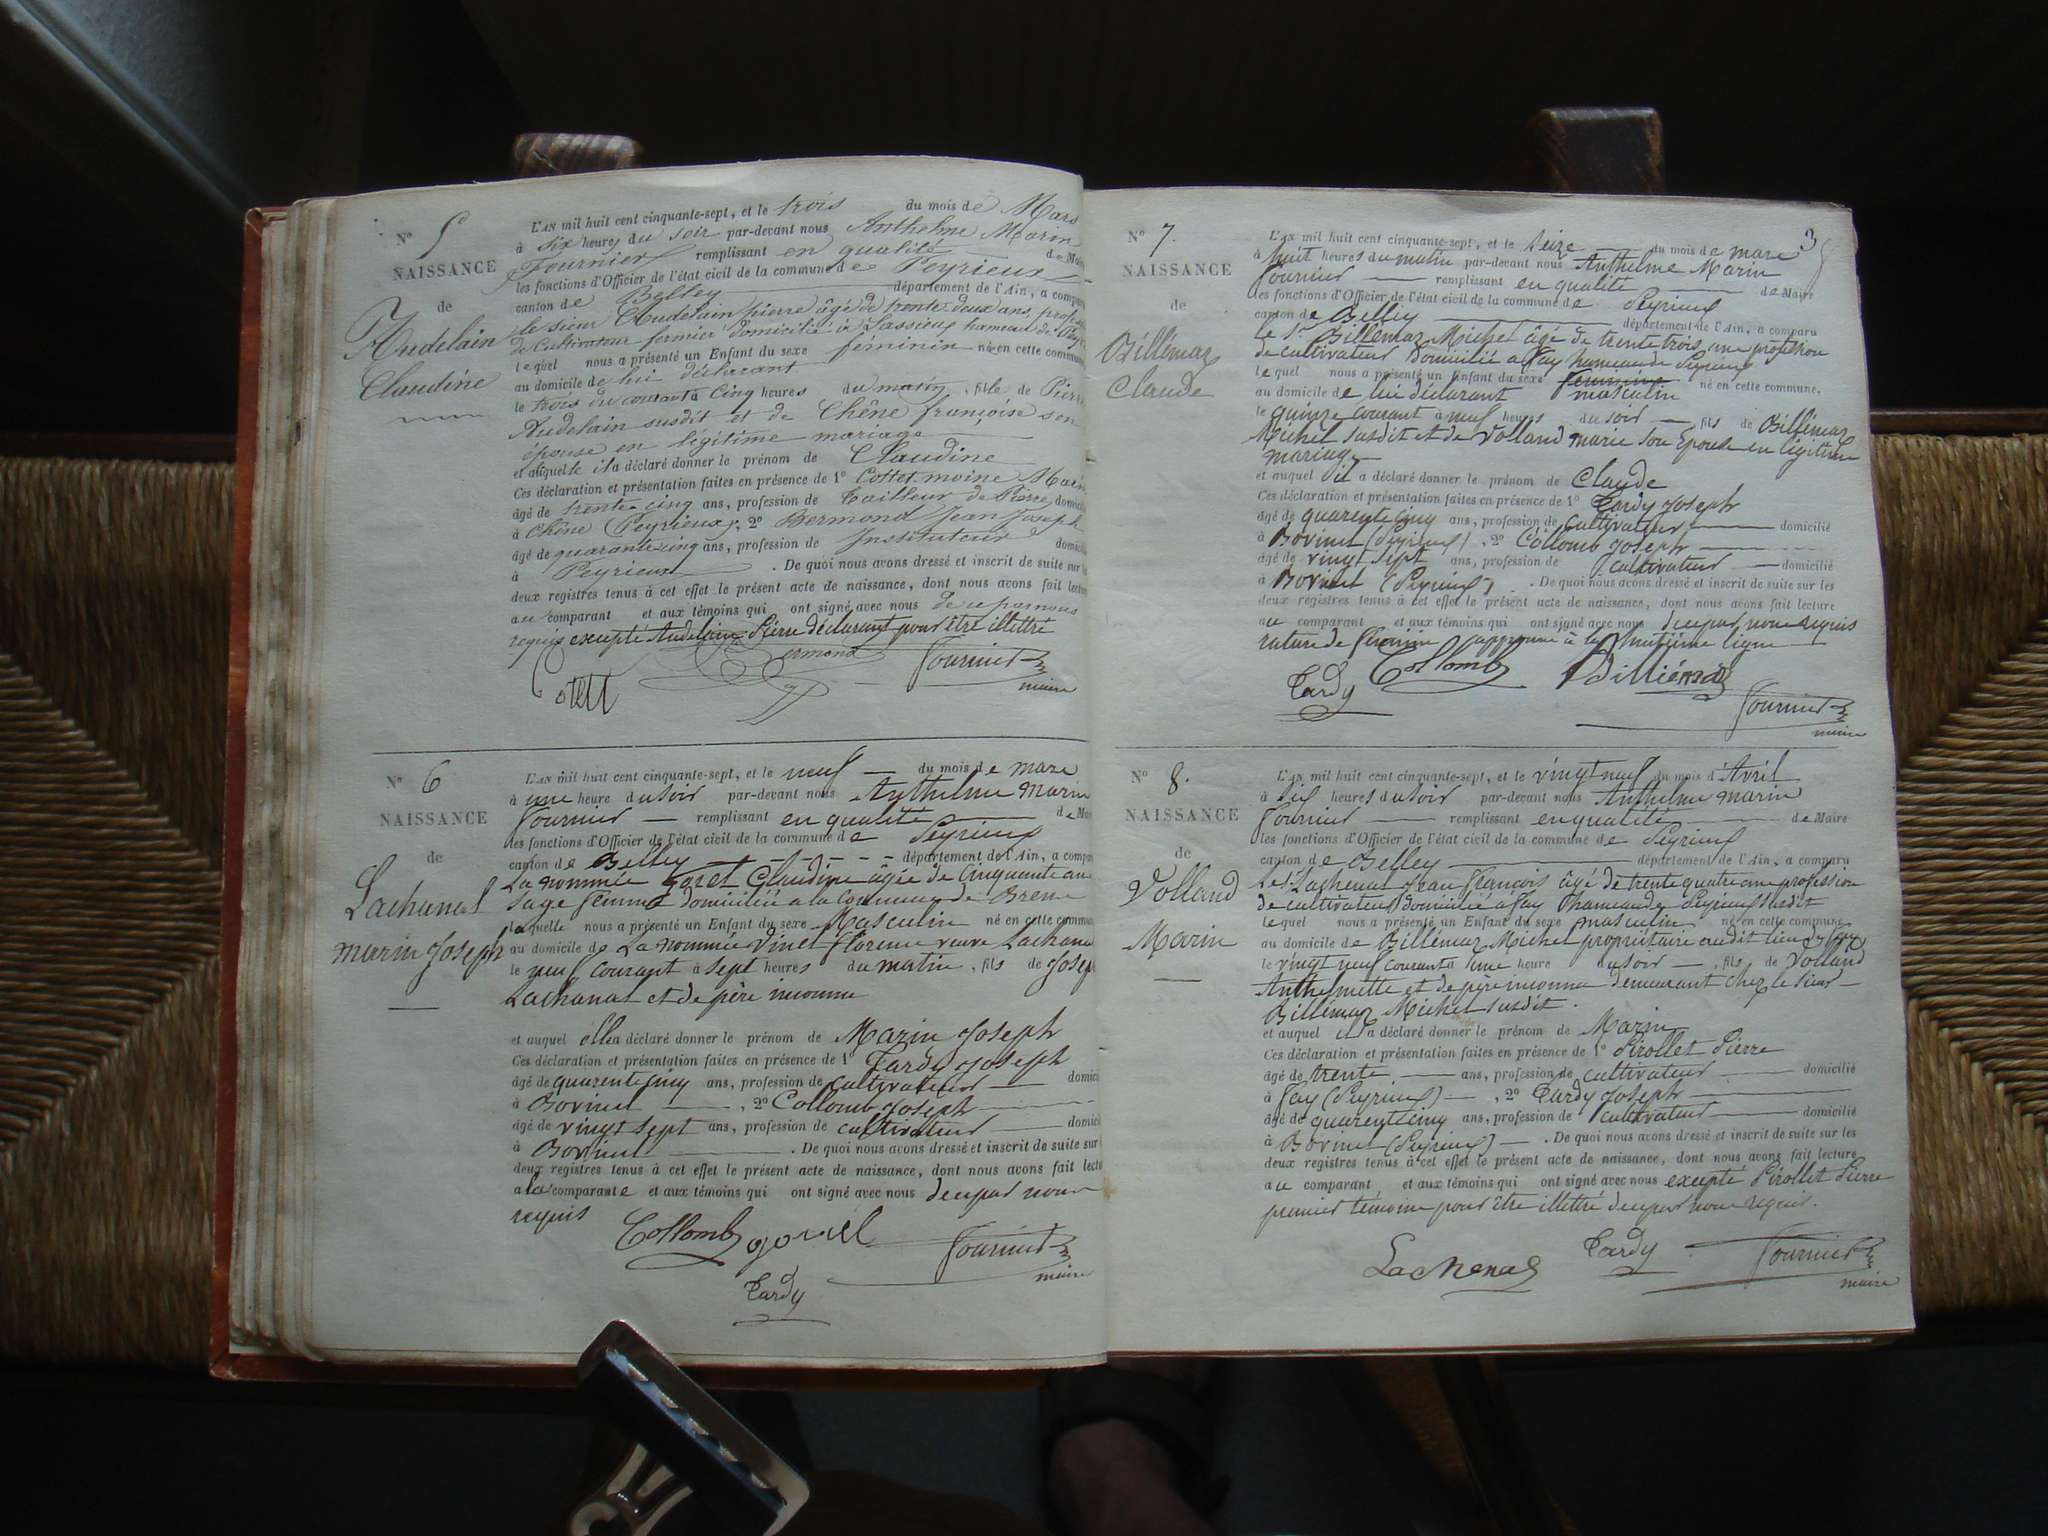 N° 5
NAISSANCE
de
Audelain
Claudine
L'AN mil huit cent cinquante-sept, et le trois du mois de Mars
à six heures du soir par-devant nous Anthelme Marin
Fournier remplissant en qualité de Maire
les fonctions d'Officier de l'état civil de la commune de Peyrieux
canton de Belley département de l'Ain, a comparu
le sieur Audelain pierre âgé de trente deux ans, profession
de Cultivateur fermier domicilié à Lassieux hameau de
lequel nous a présenté un Enfant du sexe féminin né en cette commune
au domicile de lui déclarant
le trois du courant à Cinq heures du matin, fille de Pierre
Audelain susdit et de Chêne françoise son
épouse en légitime mariage
et auquelle il a déclaré donner le prénom de Claudine
Ces déclaration et présentation faites en présence de 1° Cottet moine Marin
âgé de trente-cinq ans, profession de Tailleur de Pierre domicilié
à Chêne (Peyrieux), 2° Bermond Jean Joseph
âgé de quarante-cinq ans, profession de Instituteur domicilié
à Peyrieux . De quoi nous avons dressé et inscrit de suite sur les
deux registres tenus à cet effet le présent acte de naissance, dont nous avons fait lecture
au comparant et aux témoins qui ont signé avec nous de ce par nous
requis excepté Audelain Pierre déclarant pour être illettré
Cotett Bermond Fournier
maire
N° 6
NAISSANCE
de
Lachanal
Marin Joseph
L'AN mil huit cent cinquante-sept, et le neuf du mois de mars
à une heure du soir par-devant nous Anthelme Marin
Fournier remplissant en qualité de Maire
les fonctions d'Officier de l'état civil de la commune de Peyrieux
canton de Belley département de l'Ain, a comparu
La nommée Goret Claudine âgée de Cinquante ans
sage femme domiciliée a la Commune de Brens
laquelle nous a présenté un Enfant du sexe Masculin né en cette commune
au domicile de La nommée Vinet Florence veuve Lachanal
le neuf courant à sept heures du matin, fils de Joseph
Lachanal et de père inconnu
et auquel elle a déclaré donner le prénom de Marin Joseph
Ces déclaration et présentation faites en présence de 1° Tardy Joseph
âgé de quarente cinq ans, profession de Cultivateur domicilié
à Bovinel , 2° Collomb Joseph
âgé de vingt sept ans, profession de cultivateur domicilié
à Bovinel . De quoi nous avons dressé et inscrit de suite sur les
deux registres tenus à cet effet le présent acte de naissance, dont nous avons fait lecture
a la comparante et aux témoins qui ont signé avec nous de ce par nous
requis
Collomb Fournier
maire
Tardy
3
N° 7.
NAISSANCE
de
Billémaz
Claude
L'AN mil huit cent cinquante-sept, et le seize du mois de mars
à huit heures du matin par-devant nous Anthelme Marin
Fournier remplissant en qualité de Maire
les fonctions d'Officier de l'état civil de la commune de Peyrieux
canton de Belley département de l'Ain, a comparu
le Sr Billémaz Michel âgé de trente trois ans profession
de cultivateur domicilié a Fay hameau de Peyrieux
lequel nous a présenté un Enfant du sexe féminin né en cette commune.
au domicile de lui déclarant masculin
le quinze courant à neuf heures du soir , fils de Billémaz
Michel susdit et de Volland marie son Epouse en légitime
mariage
et auquel il a déclaré donner le prénom de Claude
Ces déclaration et présentation faites en présence de 1° Tardy Joseph
âgé de quarente cinq ans, profession de Cultivateur domicilié
à Bovinel (Peyrieux) , 2° Collomb Joseph
âgé de vingt sept ans, profession de cultivateur domicilié
à Bovinel (Peyrieux) . De quoi nous avons dressé et inscrit de suite sur les
deux registres tenus à cet effet le présent acte de naissance, dont nous avons fait lecture
au comparant et aux témoins qui ont signé avec nous de ce par nous requis
rature de féminin approuvé à la huitième ligne
Tardy Collomb Billiémaz
Fournier
maire
N° 8.
NAISSANCE
de
Volland
Marin
L'AN mil huit cent cinquante-sept, et le vingt neuf du mois d'Avril
à six heures du soir par-devant nous Anthelme marin
Fournier remplissant en qualité de Maire
les fonctions d'Officier de l'état civil de la commune de Peyrieux
canton de Belley département de l'Ain, a comparu
Le Sr Lachenal Jean François âgé de trente quatre ans profession
de cultivateur domicilié a Fay hameau de Peyrieux susdit
lequel nous a présenté un Enfant du sexe masculin né en cette commune
au domicile de Billémaz Michel propriétaire au dit lieu de Fay
le vingt neuf courant à une heure du soir , fils de Volland
Anthelmette et de père inconnu demeurant chez le sieur
Billémaz Michel susdit.
et auquel il a déclaré donner le prénom de Marin
Ces déclaration et présentation faites en présence de 1° Pirollet Pierre
âgé de trente ans, profession de cultivateur domicilié
à Fay (Peyrieux) , 2° Tardy Joseph
âgé de quarente cinq ans, profession de cultivateur domicilié
à Bovinel (Peyrieux) . De quoi nous avons dressé et inscrit de suite sur les
deux registres tenus à cet effet le présent acte de naissance, dont nous avons fait lecture
au comparant et aux témoins qui ont signé avec nous excepté Pirollet Pierre
premier témoin pour être illettré de ce par nous requis.
Lachenal Tardy Fournier
maire